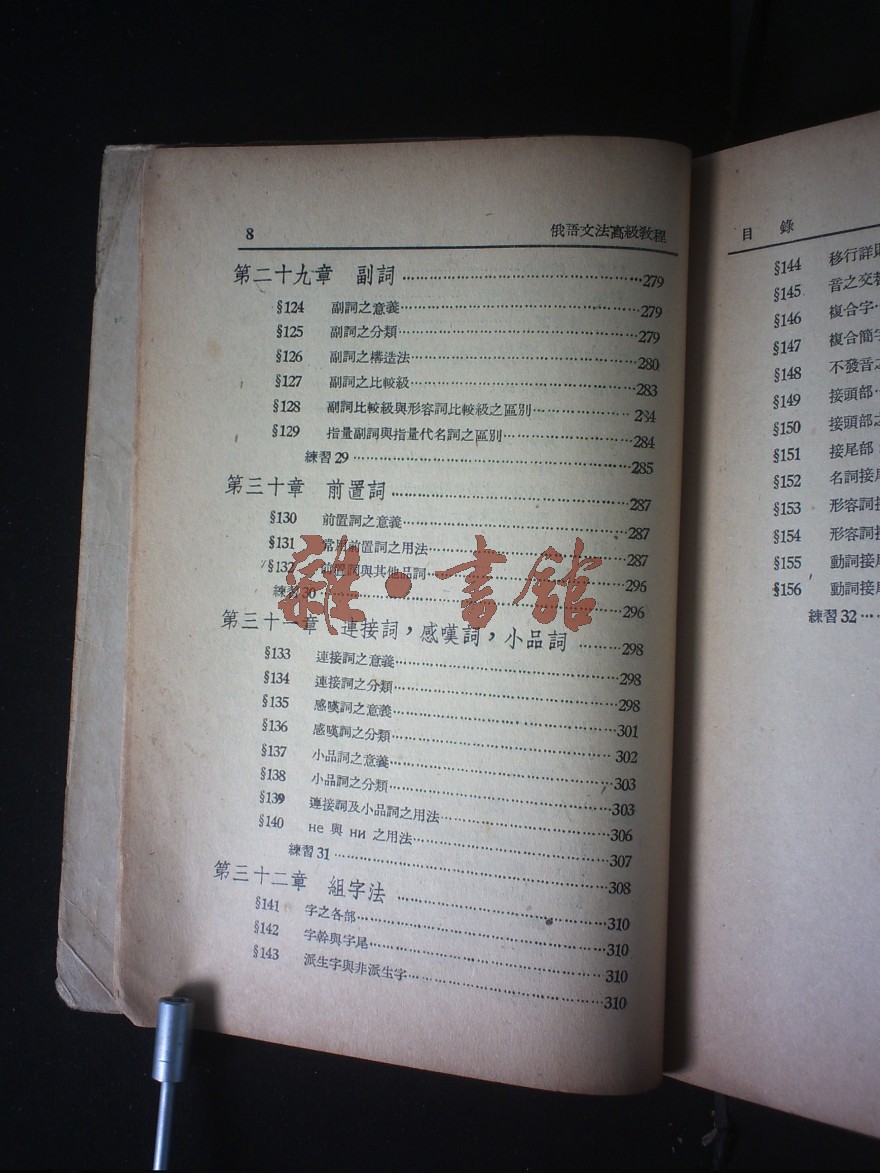 8 俄語文法高級教程
第二十九章 副詞……279
§124 副詞之意義……279
§125 副詞之分類……279
§126 副詞之構造法……280
§127 副詞之比較級……283
§128 副詞比較級與形容詞比較級之區別……284
§129 指量副詞與指量代名詞之區別……284
練習29……285
第三十章 前置詞……287
§130 前置詞之意義……287
§131 常用前置詞之用法……287
§132 前置詞與其他品詞……296
練習30……296
第三十一章 連接詞，感嘆詞，小品詞……298
§133 連接詞之意義……298
§134 連接詞之分類……298
§135 感嘆詞之意義……301
§136 感嘆詞之分類……302
§137 小品詞之意義……303
§138 小品詞之分類……303
§139 連接詞及小品詞之用法……306
§140 не 與 ни 之用法……307
練習31……308
第三十二章 組字法……310
§141 字之各部……310
§142 字幹與字尾……310
§143 派生字與非派生字……310
雜·書館
目錄
§144 移行詳則
§145 音之交替
§146 複合字…
§147 複合簡字
§148 不發音之
§149 接頭部…
§150 接頭部之
§151 接尾部
§152 名詞接尾
§153 形容詞接
§154 形容詞接
§155 動詞接尾
§156 動詞接尾
練習32…